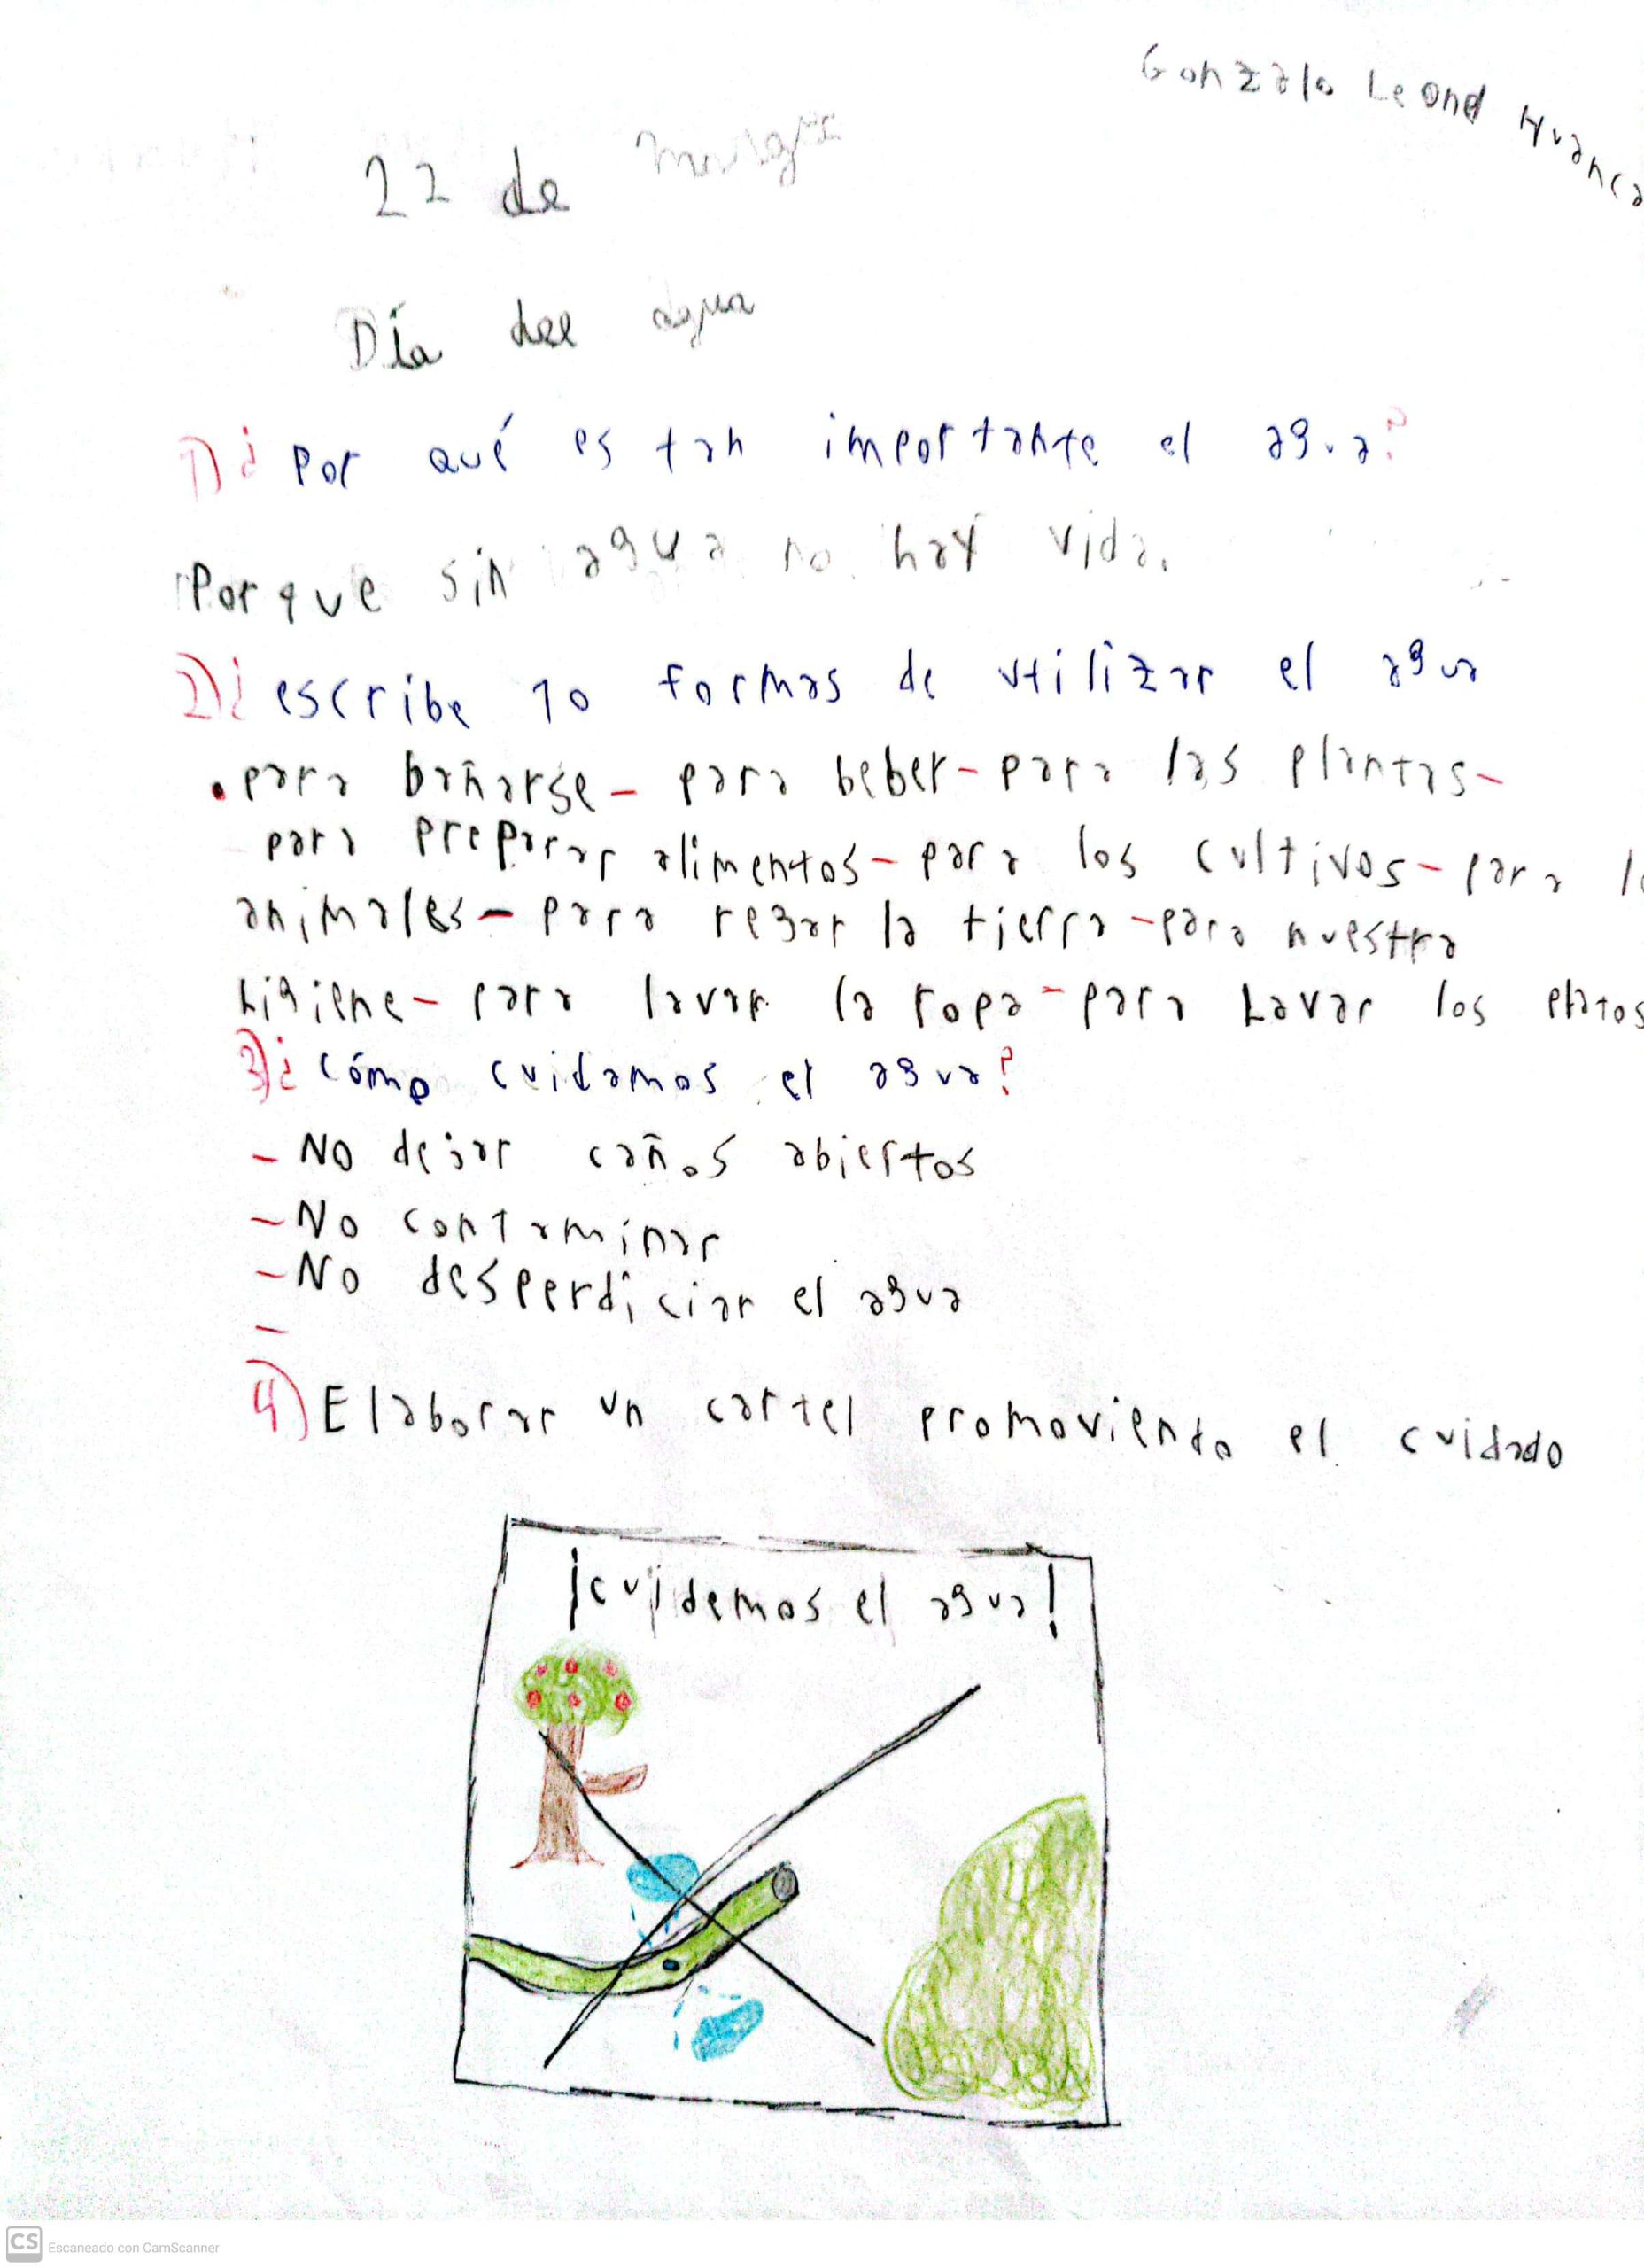 Gonzalo Leond Huanca
22 de
Día del agua
1) ¿Por qué es tan importante el agua?
Porque sin agua no hay vida.
2) ¿escribe 10 formas de utilizar el agua
• para bañarse - para beber - para las plantas -
para preparar alimentos - para los cultivos - para lo
animales - para regar la tierra - para nuestra
higiene - para lavar la ropa - para Lavar los platos
3) ¿cómo cuidamos el agua?
- No dejar caños abiertos
- No contaminar
- No desperdiciar el agua
-
4) Elaborar un cartel promoviendo el cuidado
¡cuidemos el agua!
CS Escaneado con CamScanner